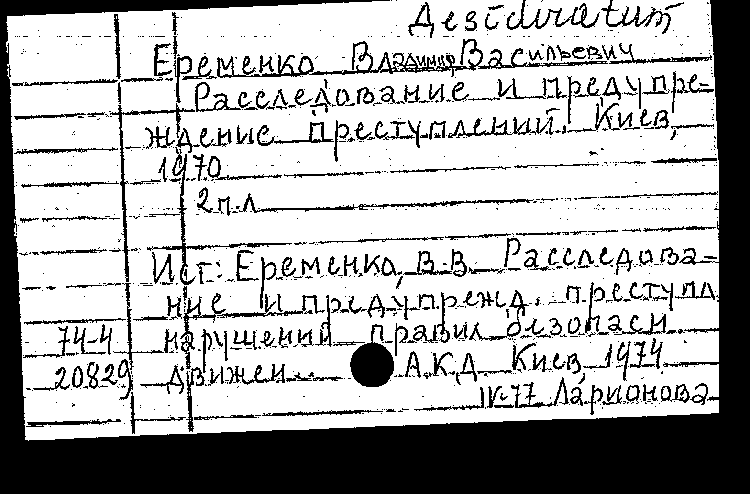 Desideratum
Еременко Владимир Васильевич
Расследование и предупре-
ждение преступлений. Киев,
1970
2 п.л
Ист: Еременко, В.В. Расследова-
ние и предупрежд. преступл
74-4 нарушений правил безопасн
20829 движен.. А.К.Д. Киев, 1974
IV-77 Ларионова